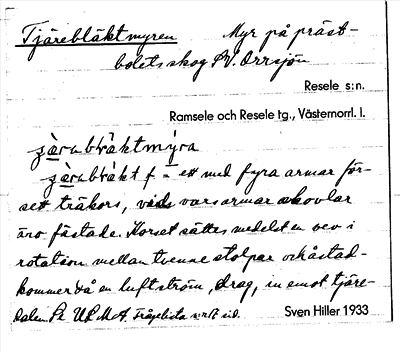 Tjärebläktmyren Myr på präst-
bolets skog NV. Orrsjön
Resele s:n.
Ramsele och Resele tg., Västernorrl. l.
blåktmýra
f = ett med fyra armar för-
sett träkors, vid vars armar skovlar
äro fästade. Korset sättes medelst en vev i
rotation mellan tvenne stolpar och åstad-
kommer så en luftström, drag, in emot tjäre-
dalen. ULMA Frågelista s:n
Sven Hiller 1933